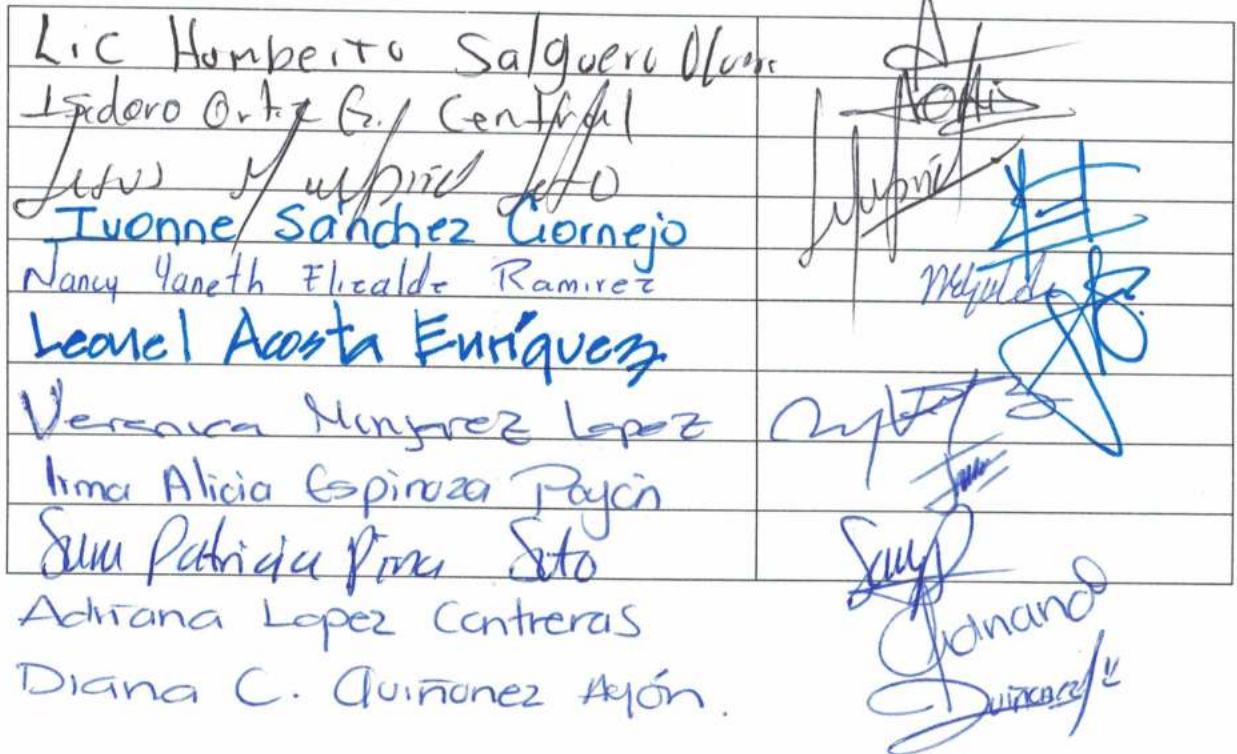 Lic Humberto Salguero
Isidoro Ortiz G. / Central
Jesus M Soto
Ivonne Sánchez Cornejo
Nancy Yaneth Elizalde Ramirez
Leonel Acosta Enríquez
Veronica Monjarez Lopez
Irma Alicia Espinoza Payán
Patricia Pina Soto
Adriana Lopez Contreras
Adriana
Diana C. Quiñonez Ayón.
Quiñonez